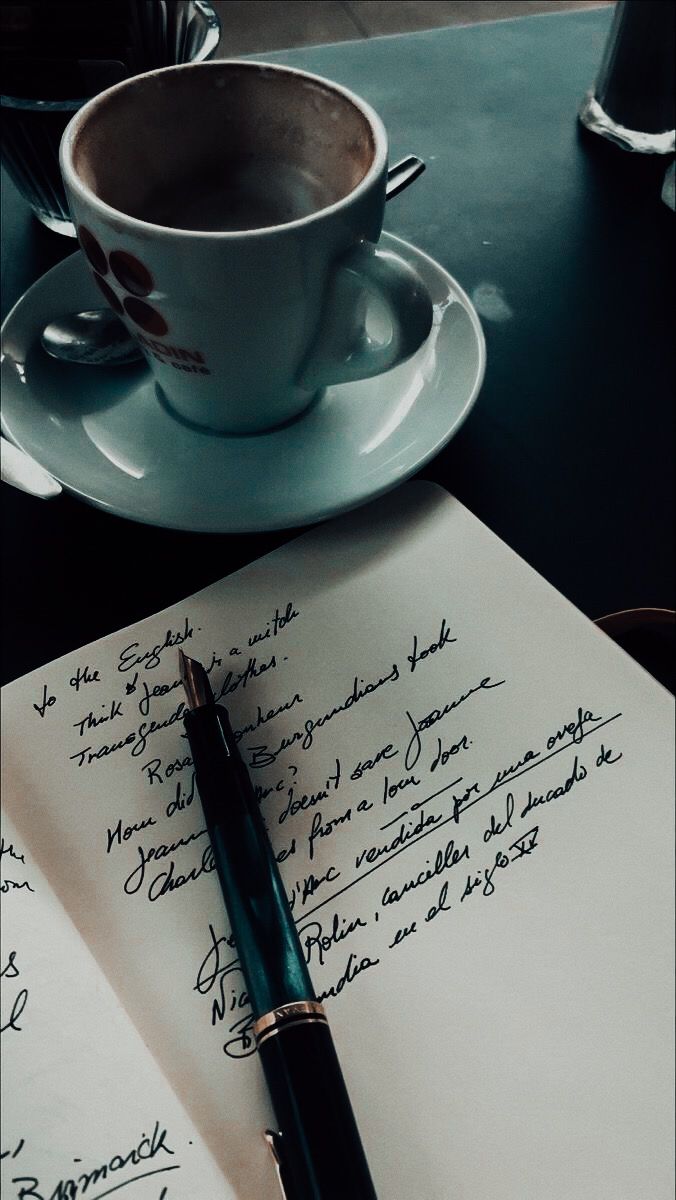 ADIN
café
to the English.
Think Jean is a witch
Transgende clothes.
Rosa onheur
How did Burgundians took
Jeann Arc?
Charl doesn't save Joanne
es from a low door.
d'Arc vendida por una oveja
Nic Rolin, canciller del ducado de
B undia en el siglo XV
s
l
Bismarck.